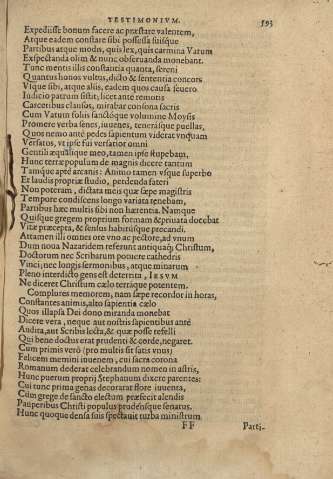 TESTIMONIVM. 593
Expediisse bonum facere ac præstare valentem,
Atque eadem constare sibi possessa fuisque
Partibus atque modis, quis lex, quis carmina Vatum
Exspectanda olim & nunc obseruanda monebant.
Tunc mentis illis constantia quanta, sereni
Quantus honos vultus, dicto & sententia concors
Vtque sibi, atque aliis, eadem quos causa seuero
Iudicio patrum sistit, licet ante remotis
Carceribus clausos, mirabar consona sacris
Cum Vatum solis sanctóque volumine Moysis
Promere verba senes, iuuenes, tenerásque puellas,
Quos nemo ante pedes sapientum viderat vnquam
Versatos, vt ipse fui versatior omni
Gentili æqualíque meo, tamen ipse stupebam,
Hunc terræ populum de magnis dicere tantum
Tamque apte arcanis: Animo tamen vsque superbo
Et laudis propriæ studio, perdenda fateri
Non poteram, dictata meis quæ sæpe magistris
Tempore condiscens longo variata tenebam,
Partibus hæc multis sibi non hærentia. Namque
Quisque gregem proprium formam & priuata docebat
Vitæ præcepta, & sensus habitúsque precandi.
Attamen illi omnes ore vno ac pectore, ad vnum
Dum noua Nazaridem referunt antiquáq; Christum,
Doctorum nec Scribarum potuere cathedris
Vinci; nec longis sermonibus, atque minarum
Pleno interdicto gens est deterrita, IESVM
Ne diceret Christum cælo terráque potentem.
Complures memorem, nam sæpe recordor in horas,
Constantes animis, alto sapientia cælo
Quos illapsa Dei dono miranda monebat
Dicere vera, neque aut nostris sapientibus ante
Audita, aut Scribis lecta, & quæ posse refelli
Qui bene doctus erat prudenti & corde, negaret.
Cùm primis verò (pro multis sit satis vnus)
Felicem memini iuuenem, cui sacra corona
Romanum dederat celebrandum nomen in astris,
Hunc puerum proprij Stephanum dixere parentes:
Cui tunc prima genas decorarat flore iuuenta,
Cùm grege de sancto electum præfecit alendis
Pauperibus Christi populus prudénsque senatus.
Hunc quoque densa suis spectauit turba ministrum
FF Parti-